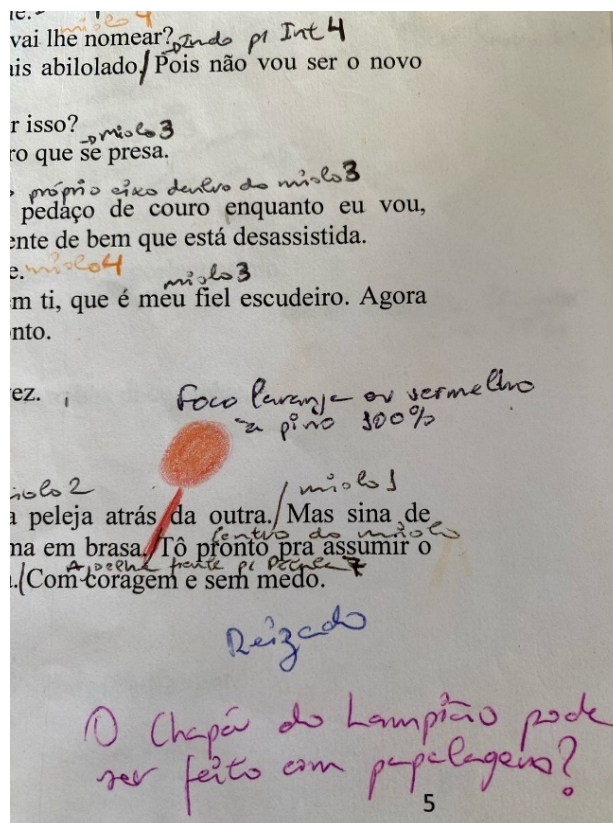 miolo 4
vai lhe nomear? Indo p/ Int 4
ais abilolado./ Pois não vou ser o novo
r isso?
miolo 3
ro que se presa.
próprio eixo dentro do miolo 3
pedaço de couro enquanto eu vou,
ente de bem que está desassistida.
e. miolo 4
miolo 3
m ti, que é meu fiel escudeiro. Agora
nto.
ez.
Foco laranja ou vermelho
a pino 100%
miolo 2 miolo 1
a peleja atrás da outra./ Mas sina de
dentro do miolo
na em brasa./ Tô pronto pra assumir o
frente p/
./ Com coragem e sem medo.
Reizado
O Chapéu do Lampião pode
ser feito com papelagens?
5